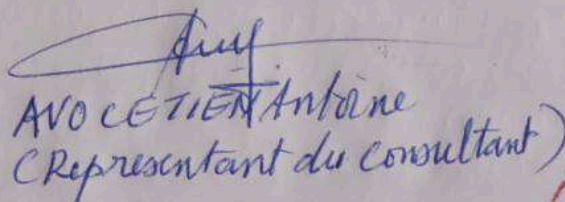 AVOCETIEN Antoine
(Représentant du consultant)